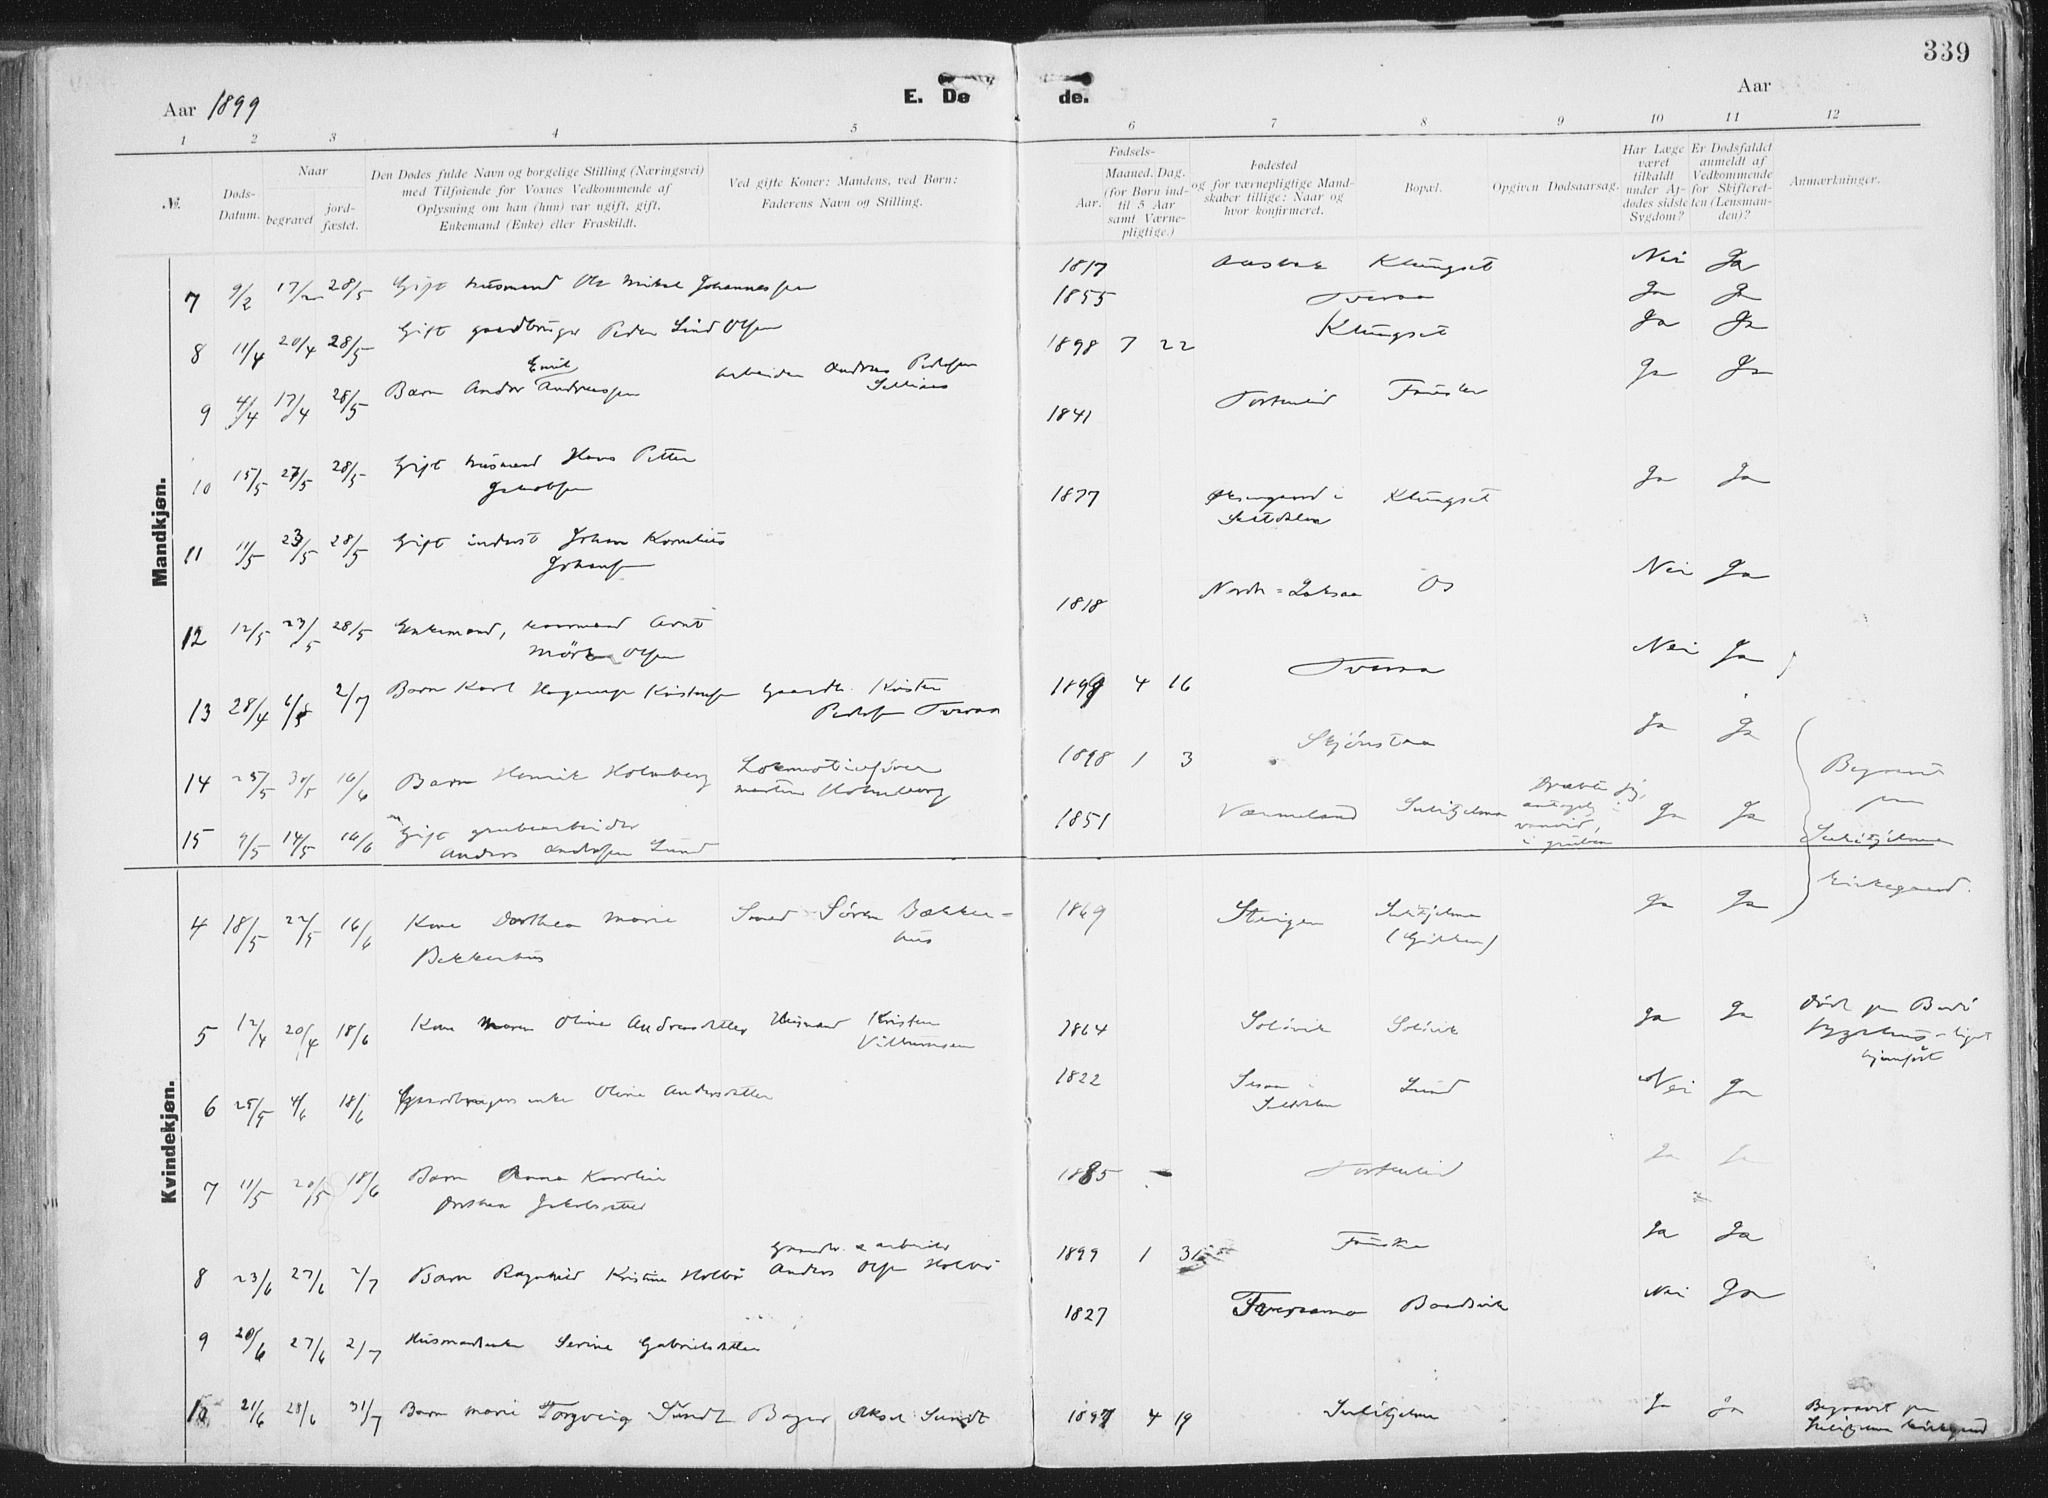 339
Aar 1899
E. De de.
Aar
1 2 3 4 5 6 7 8 9 10 11 12
№.
Døds-Datum.
Naar
begravet
jord-fæstet.
Den Dødes fulde Navn og borgelige Stilling (Næringsvei)
med Tilføiende for Voxnes Vedkommende af
Oplysning om han (hun) var ugift, gift,
Enkemand (Enke) eller Fraskildt.
Ved gifte Koner: Mandens, ved Børn:
Faderens Navn og Stilling.
Fødsels-
Aar.
Maaned. Dag.
(for Børn ind-
til 5 Aar
samt Værne-
pligtige.)
Fødested
og for værnepligtige Mand-
skaber tillige: Naar og
hvor konfirmeret.
Bopæl.
Opgiven Dødsaarsag.
Har Læge
været
tilkaldt
under Af-
dødes sidste
Sygdom?
Er Dødsfaldet
anmeldt af
Vedkommende
for Skifteret-
ten (Lensman-
den)?
Anmærkninger.
Mandkjøn.
7 9/2 17/ 28/5 Gift husmand Ole Mikal Johannessen 1817 Klungset Nei Ja
8 11/4 20/4 28/5 Gift gaardbruger Peder Lund Olsen 1855 Tveraa Ja Ja
Emil
9 4/4 17/4 28/5 Barn Andor Andreassen arbeider Andreas Pedersen 1898 7 22 Klungset Ja Ja
10 15/5 27/5 28/5 Gift husmand Hans Petter 1841 Fauske Ja Ja
Jakobsen
11 11/5 23/5 28/5 Gift inderst Johan Kornelius 1877 Klungset Ja Ja
Johansen
12 12/5 23/5 28/5 Enkemand, Arnt 1818 Os Nei Ja
Mørk Olsen
13 28/4 6/5 2/7 Barn Karl Hagerup Kristensen Gaardb. Kristen 1899 4 16 Tveraa Nei Ja
Pedersen Tveraa
14 25/5 30/5 16/6 Barn Henrik Holmberg Lokomotivfører 1898 1 3 Skjønstaa Ja Ja
Martin Holmberg
15 9/5 14/5 16/6 Gift grubearbeider 1851 Værmeland Sulitjelma Dræbte sig, Ja Ja
Anders Andersen Lund
vanvid,
i gruben
Begravet
paa
Sulitjelma
kirkegaard.
Kvindekjøn.
4 18/5 22/5 16/6 Kone Dorthea Marie Smed Søren Bækken- 1869 Steigen Sulitjelma Ja Ja
Bekkenhus hus
5 12/4 20/4 18/6 Kone Maren Oline Andersdatter Husmand Kristen 1864 Soløivik Soløivik Ja Ja Død paa Bodø
Vilhumsen sygehus - liget
hjemført
6 25/5 4/6 18/6 Gaardbrugers enke Oline Andersdatter 1822 Lund Nei Ja
7 11/5 20/5 18/6 Barn Anna Karoline 1885 - Ja Ja
Dorthea Jakobsdatter
8 23/6 27/6 2/7 Barn Ragnhild Kristine Holbø Gaardb. & arbeider 1899 1 31 Fauske Ja Ja
Anders Olsen Holbø
9 20/6 27/6 2/7 Husmandsenke Serine Gabrielsdatter 1827 Nei Ja
10 21/6 28/6 31/7 Barn Marie Torgveig Sundt Bager Aksel Sundt 1897 4 19 Sulitjelma Ja Ja Begravet paa
Sulitjelma kirkegaard